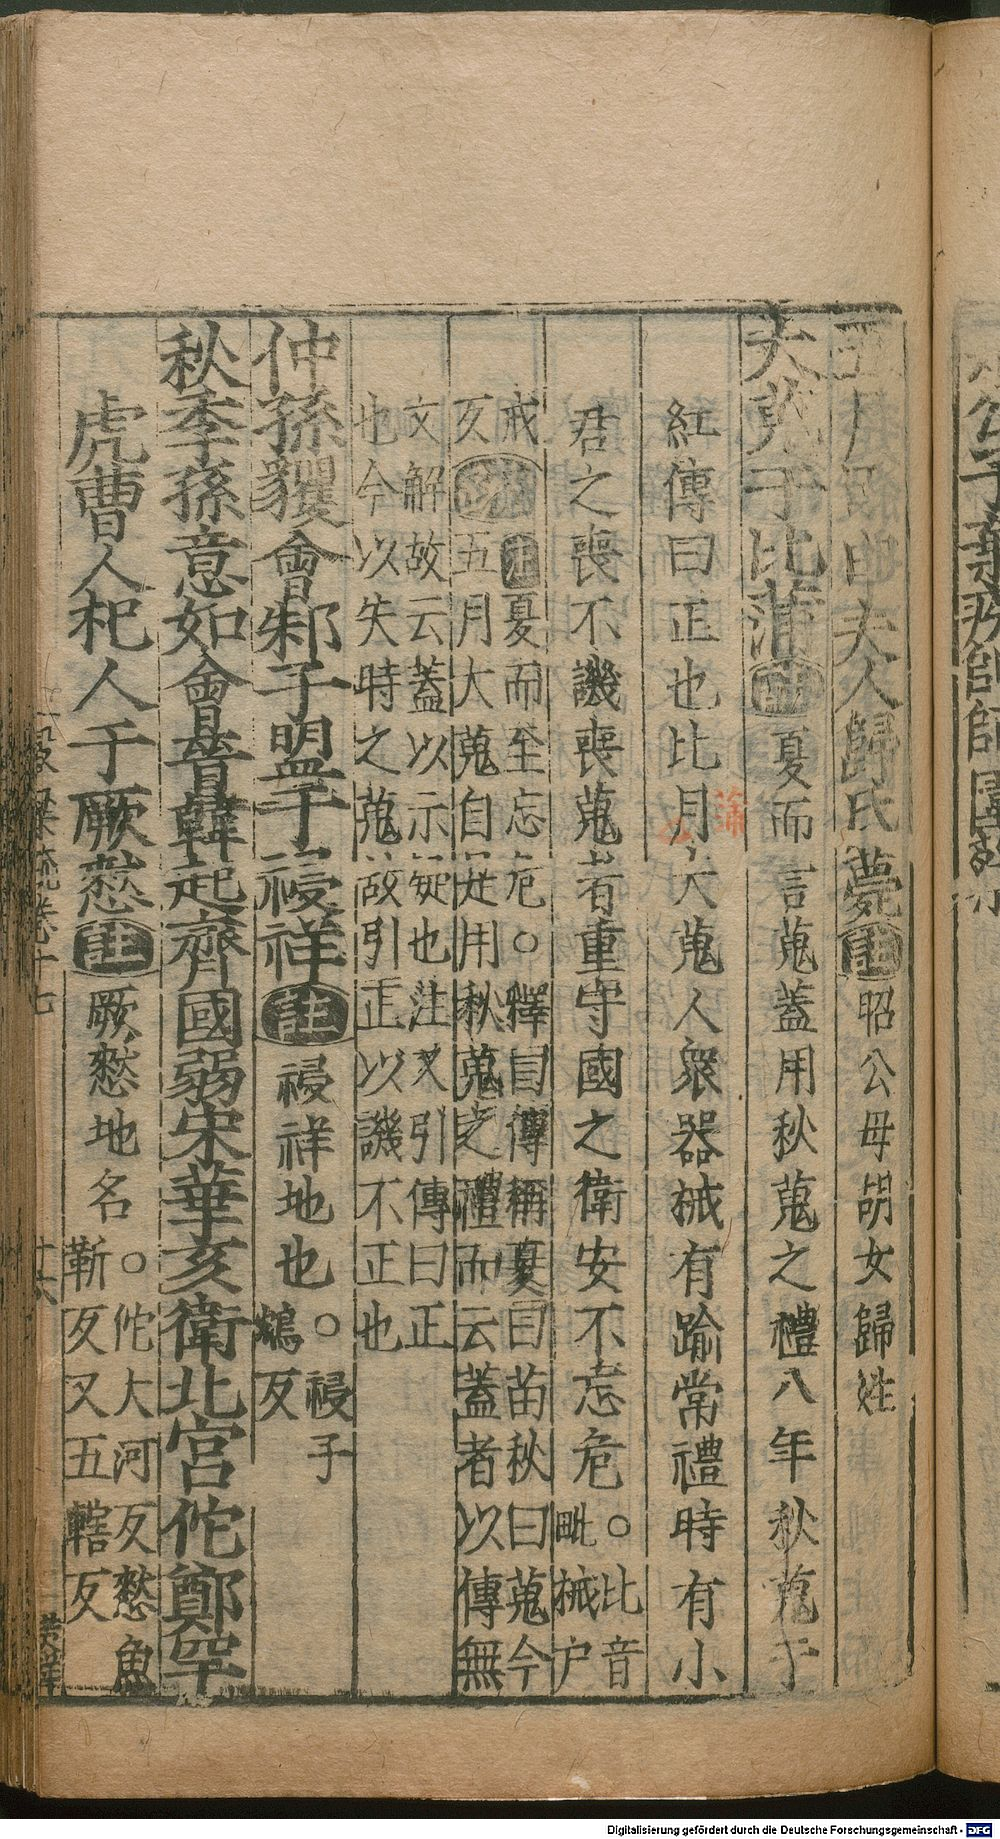 五月甲申夫人歸氏薨註昭公母胡女歸姓
大蒐于比蒲註夏而言蒐蓋用秋蒐之禮八年秋蒐于
紅傳曰正也比月大蒐人衆器械有踰常禮時有小
蒲
君之喪不譏喪蒐者重守國之衛安不忘危○比音
毗械户
戒
反疏註夏而至忘危○釋曰傳稱夏曰苗秋曰蒐今
五月大蒐自是用秋蒐之禮而云蓋者以傳無
文解故云蓋以示疑也注又引傳曰正
也今以失時之蒐故引正以譏不正也
仲孫貜會邾子盟于祲祥註祲祥地也○祲子
鴆反
秋季孫意如會晉韓起齊國弱宋華亥衛北宮佗鄭罕
虎曹人杞人于厥憗註厥憗地名○佗大河反憗魚
靳反又五轄反
榖梁疏卷十七
十六
Digitalisierung gefördert durch die Deutsche Forschungsgemeinschaft - DFG